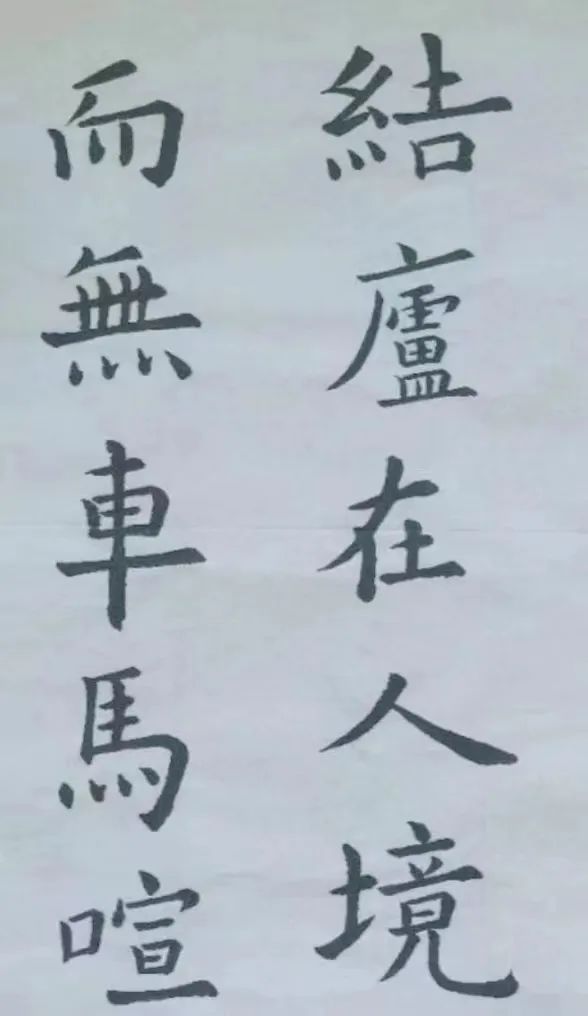 結廬在人境
而無車馬喧